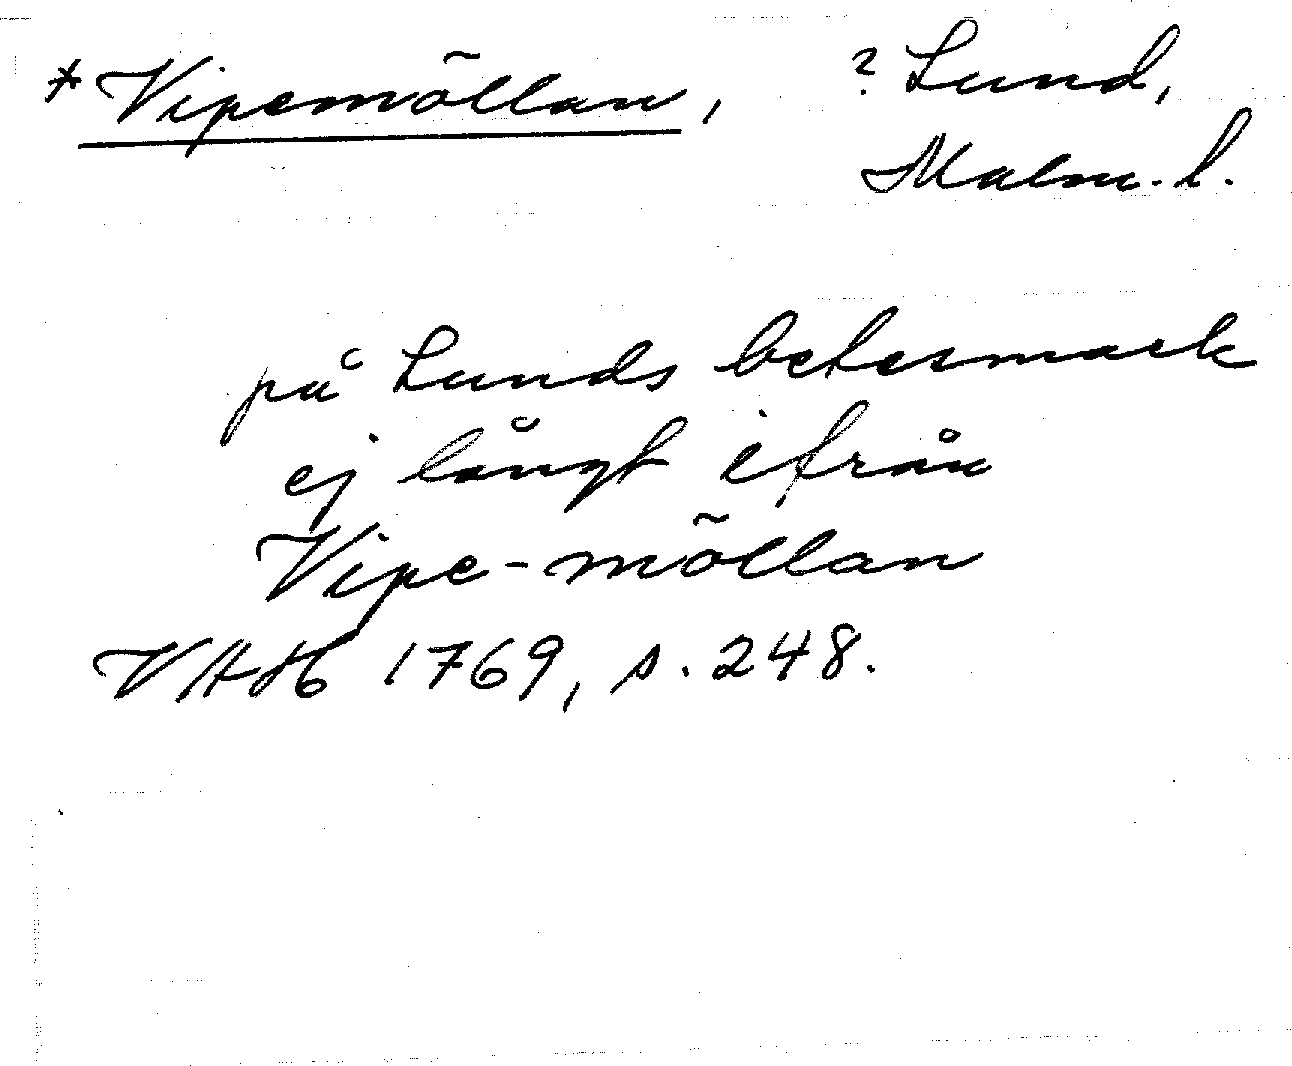 *Vipemöllan, ? Lund,
Malm. l.
på Lunds betesmark
ej långt ifrån
Vipe-möllan
VAH 1769, s. 248.